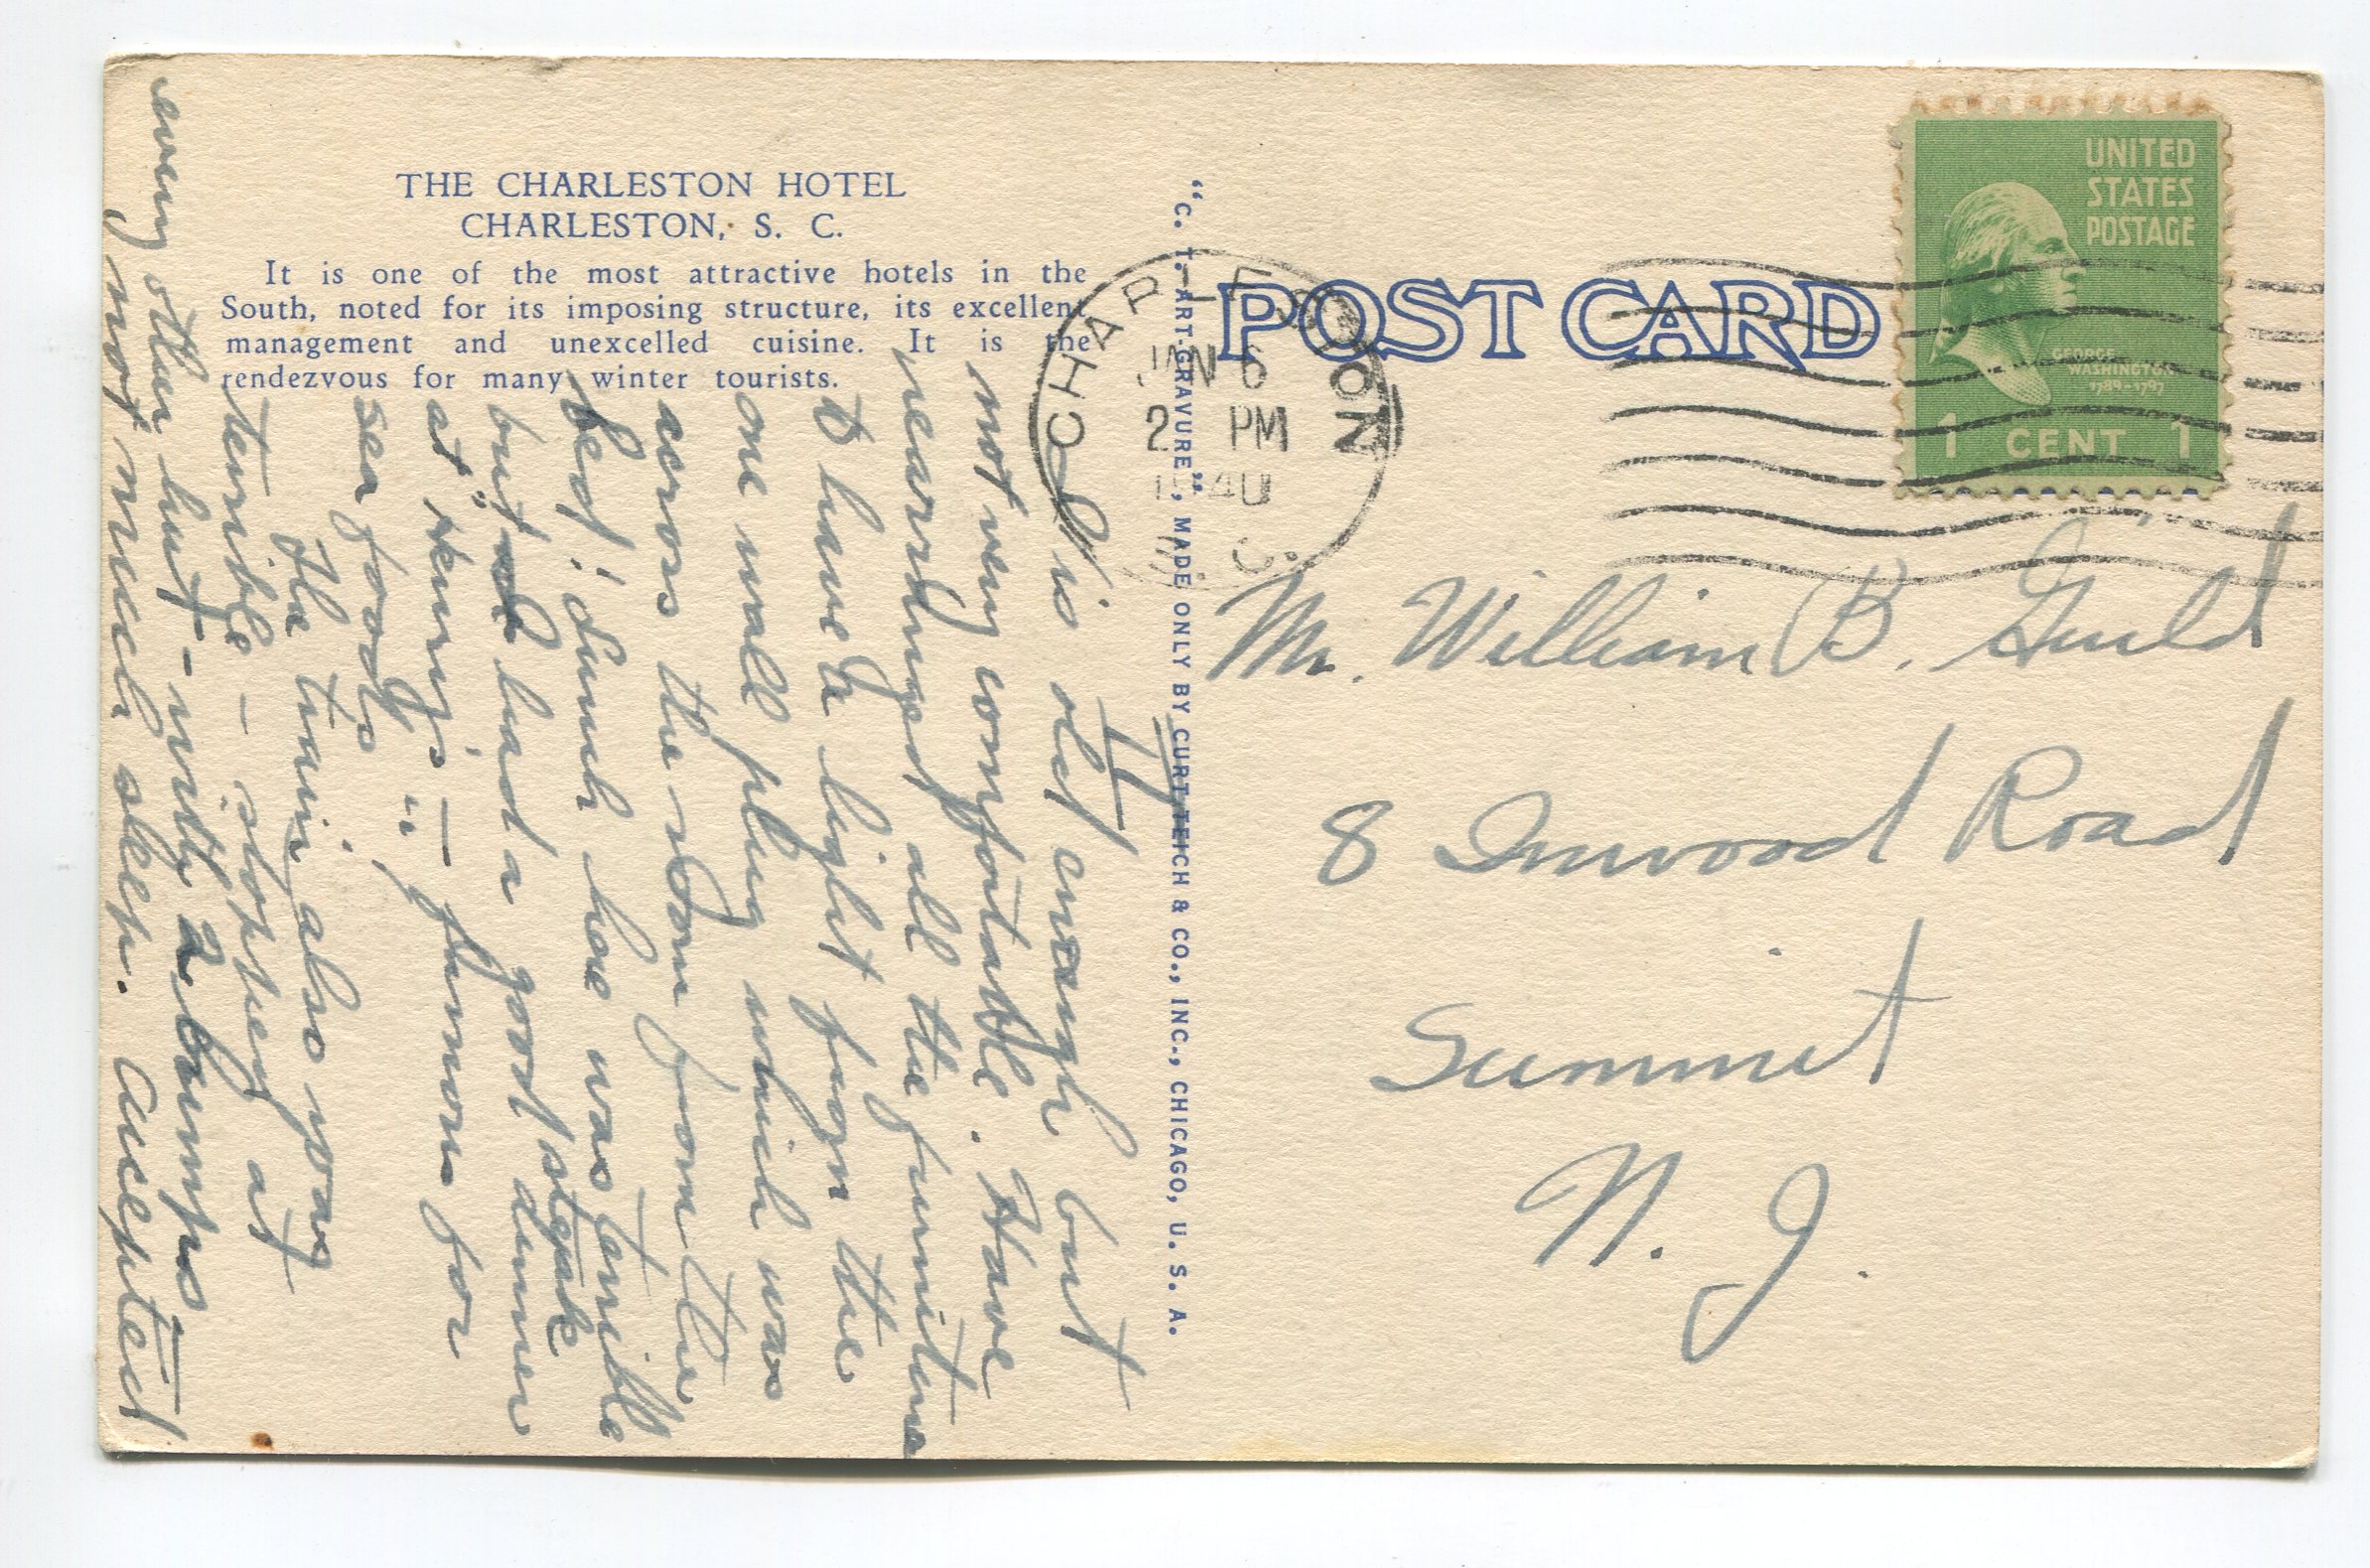 THE CHARLESTON HOTEL
CHARLESTON, S. C.
It is one of the most attractive hotels in the
South, noted for its imposing structure, its excellent
management and unexcelled cuisine. It is the
rendezvous for many winter tourists.
II
It is old enough but
not very comfortable. Have
rearranged all the furniture
to have a light from the
one wall plug which was
across the room from the
bed! Lunch here was terrible
but had a good steak dinner
at "Henry's" — famous for
sea foods
The train also was
terrible — stopped at
every other hut — with 2 bumps.
not much sleep. Accepted
"C. T. ART-GRAVURE", MADE ONLY BY CURT TEICH & CO., INC., CHICAGO, U. S. A.
POST CARD
CHARLESTON
JAN 6
2 PM
1940
S. C.
UNITED
STATES
POSTAGE
GEORGE
WASHINGTON
1789-1797
1 CENT 1
Mr. William B. Guild
8 Inwood Road
Summit
N. J.